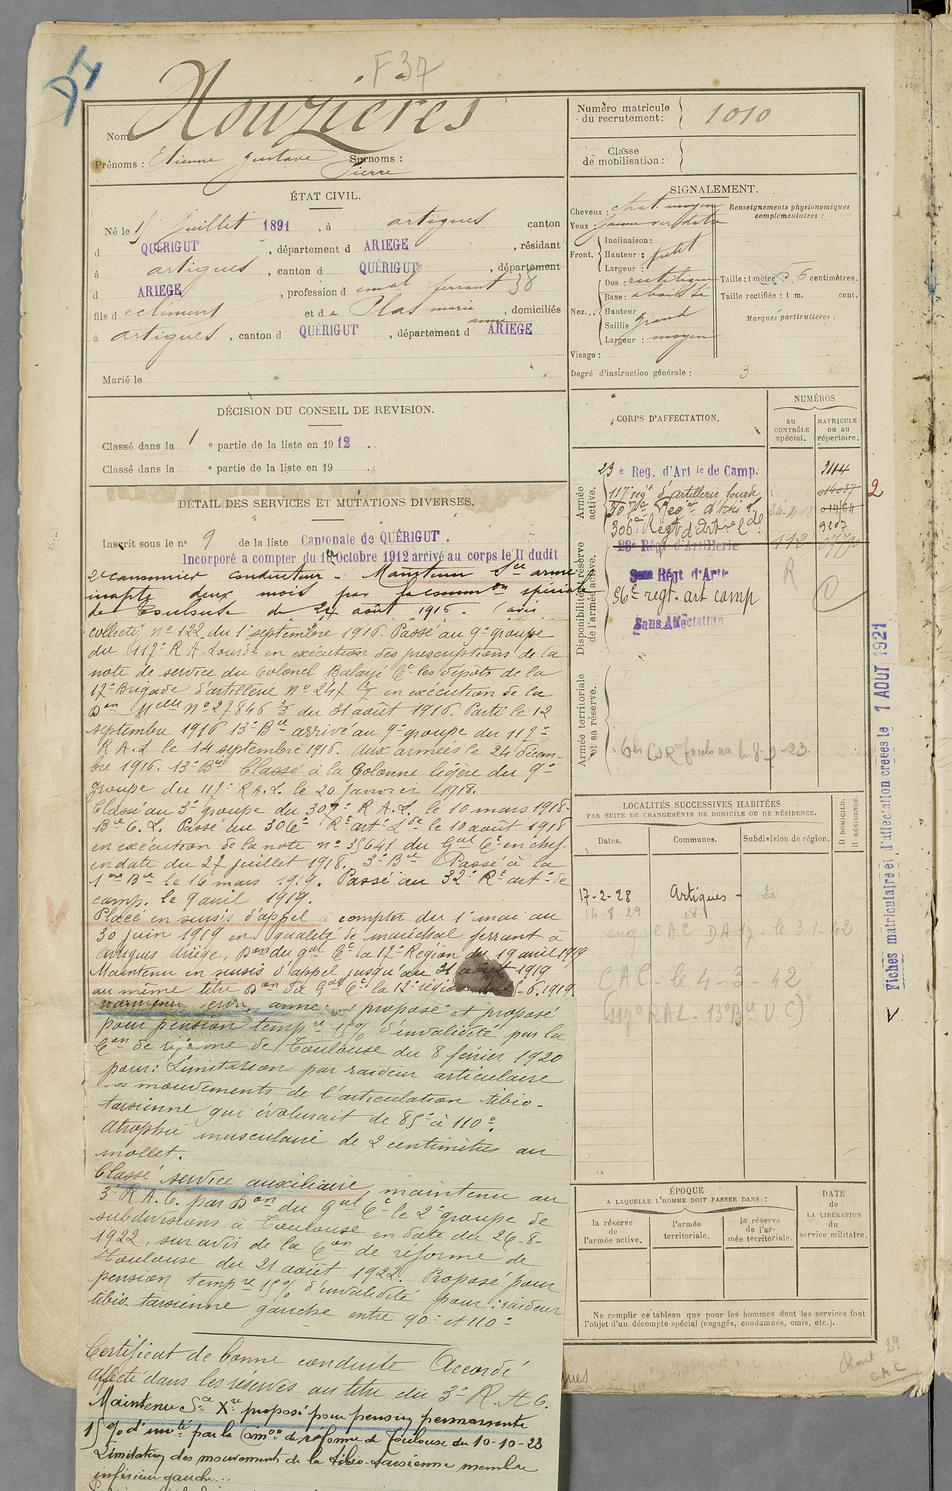 DI
F 37
Nom
Prénoms : Etienne Gustave Surnoms :
Pierre
ÉTAT CIVIL.
Né le 15 Juillet 1891, à artigues canton
d QUÉRIGUT, département d ARIEGE, résidant
à artigues, canton d QUÉRIGUT, département
d ARIEGE, profession d ferrant 38
fils d e clément et d e Plas marie
anne, domiciliés
à artigues, canton d QUÉRIGUT, département d ARIEGE
Marié le
DÉCISION DU CONSEIL DE REVISION.
Classé dans la 1 e partie de la liste en 1912.
Classé dans la e partie de la liste en 19
DÉTAIL DES SERVICES ET MUTATIONS DIVERSES.
Inscrit sous le no 9 de la liste Cantonale de QUÉRIGUT.
Incorporé a compter du Octobre 1912 arrivé au corps le II dudit
2e canonnier conducteur - Maintenu armé
inapte deux mois par la common spéciale
de Toulouse du 24 août 1916. (avis
collectif no 122 du 1er septembre 1916. Passé au 9e groupe
du 117e R A. Lourde en exécution des prescriptions de la
note de service du Colonel Balayé Ct les dépôts de la
17e Brigade d'artillerie No 247 en exécution de la
Don Mlle No 27846 3/3 du 31 août 1916. Parti le 12
septembre 1916 13e Bie arrivé au 9e groupe du 117e
R.A.L le 14 septembre 1916. Aux armées le 24 décem-
bre 1916. 13e Bie Classé à la Colonne légère du 9e
groupe du 117e R.A.L. le 20 Janvier 1918.
Classé au 3e groupe du 307e R.A.L. le 10 mars 1918.
Bie C. L. Passé au 306e Rt art. Lde le 10 août 1918
en exécution de la note no 35641 du Gal Ct en chef
en date du 27 juillet 1918. 3e Bie Passé à la
1ère Bie le 16 mars 1919. Passé au 32e Rt art. de
camp. le 9 avril 1919.
Placé en sursis d'appel à compter du 1er mai au
30 juin 1919 en qualité de maréchal ferrant à
artigues Ariège, Don du Gal Ct la 17e Région du 19 avril 1919
Maintenu en sursis d'appel jusqu'au 31 août 1919
au même titre Don du Gal Ct la 17e région 6.1919
maintenu serv. armé proposé et proposé
pour pension tempre 15 % d'invalidité par la
Con de réforme de Toulouse du 8 février 1920
pour : Limitation par raideur articulaire
mouvements de l'articulation tibio-
tarsienne qui évoluerait de 85° à 110°.
atrophie musculaire de 2 centimètres au
mollet.
Classé service auxiliaire maintenu au
3e R.A.C. par Don du Gal Ct le 2e groupe de
subdivisions à Toulouse en date du 26-8-
1922, sur avis de la Con de réforme de
Toulouse du 21 août 1922. Proposé pour
pension tempre 15 % d'invalidité pour : raideur
tibio tarsienne gauche entre 90° et 110°
Certificat de bonne conduite Accordé
affecté dans les réserves au titre du 3e R. A. C.
Maintenu Sce Xre proposé pour pension permanente
15 % d'invté par la Comon de réforme de Toulouse du 10-10-23
Limitation des mouvements de la tibio-tarsienne membre
inférieur gauche...
Numéro matricule
du recrutement : 1010
Classe
de mobilisation :
SIGNALEMENT.
Cheveux : chat moyen
Yeux :
Front. Inclinaison :
Hauteur : petit
Largeur :
Nez... Dos : rectiligne
Base : abaissée
Hauteur
Saillie grand
Largeur : moyen
Visage :
Renseignements physionomiques
complémentaires :
Taille : 1 mètre 56 centimètres.
Taille rectifiée : 1 m. cent.
Marques particulières :
Degré d'instruction générale : 3
CORPS D'AFFECTATION.
NUMÉROS
au
CONTRÔLE
spécial.
MATRICULE
ou au
répertoire.
Armée
active.
23e Reg. d'Artie de Camp.
117e regt d'artillerie lourde
307e Regt d'Artie
306e Regt d'Artie Lde
9207
Disponibilité et réserve
de l'armée active.
23e Régt d'Artillerie
112
Régt d'Artie
R
56e regt. art camp
Sans Affectation
Armée territoriale
et sa réserve.
2
Fiches matriculaire et d'affectation créées le 1 AOUT 1921
V
LOCALITÉS SUCCESSIVES HABITÉES
PAR SUITE DE CHANGEMENTS DE DOMICILE OU DE RÉSIDENCE.
Dates.
Communes.
Subdivision de région.
D. DOMICILE.
R. RÉSIDENCE.
17-2-28 Artigues -
14-8-29 id.
CAC - le 4-3-42
(117e RAL - 13e Bie VC)
ÉPOQUE
A LAQUELLE L'HOMME DOIT PASSER DANS :
la réserve
de
l'armée active.
l'armée
territoriale.
la réserve
de l'ar-
mée territoriale.
DATE
de
LA LIBÉRATION
du
service militaire.
Ne remplir ce tableau que pour les hommes dont les services font
l'objet d'un décompte spécial (engagés, condamnés, omis, etc.).